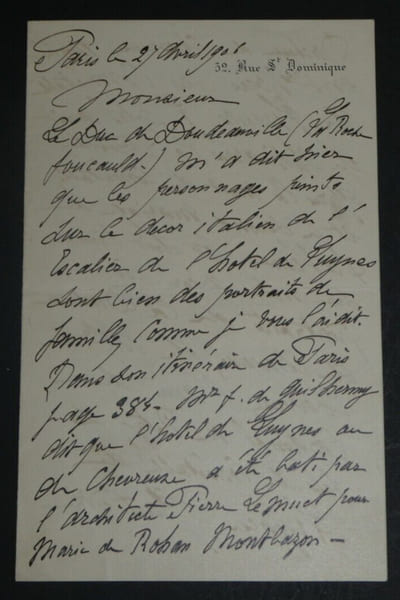 Paris le 27 Avril 1906
52. Rue St Dominique
Monsieur
Le Duc de Doudeauville (La Roche
foucauld) m'a dit hier
que les personnages peints
sur le décor italien de l'
Escalier de l'hotel de Luynes
sont bien des portraits de
famille, comme je vous l'ai dit.
Dans son itinéraire de Paris
page 384 - Mr f. de Guilhermy
dit que l'hotel de Luynes ou
de Chevreuse a été bati par
l'architecte Pierre Lemuet pour
Marie de Rohan Montbazon -